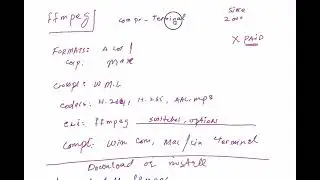 ffmpeg compr - Terminal Since 2000
X PAID
FORMATS: A Lot!
Comp. Max
Compl: W M L
Coders: H.264, H.265, AAC, mp3
CLI: ffmpeg switches, options
Compl: Win Com, Mac/Lin Terminal
Download or install